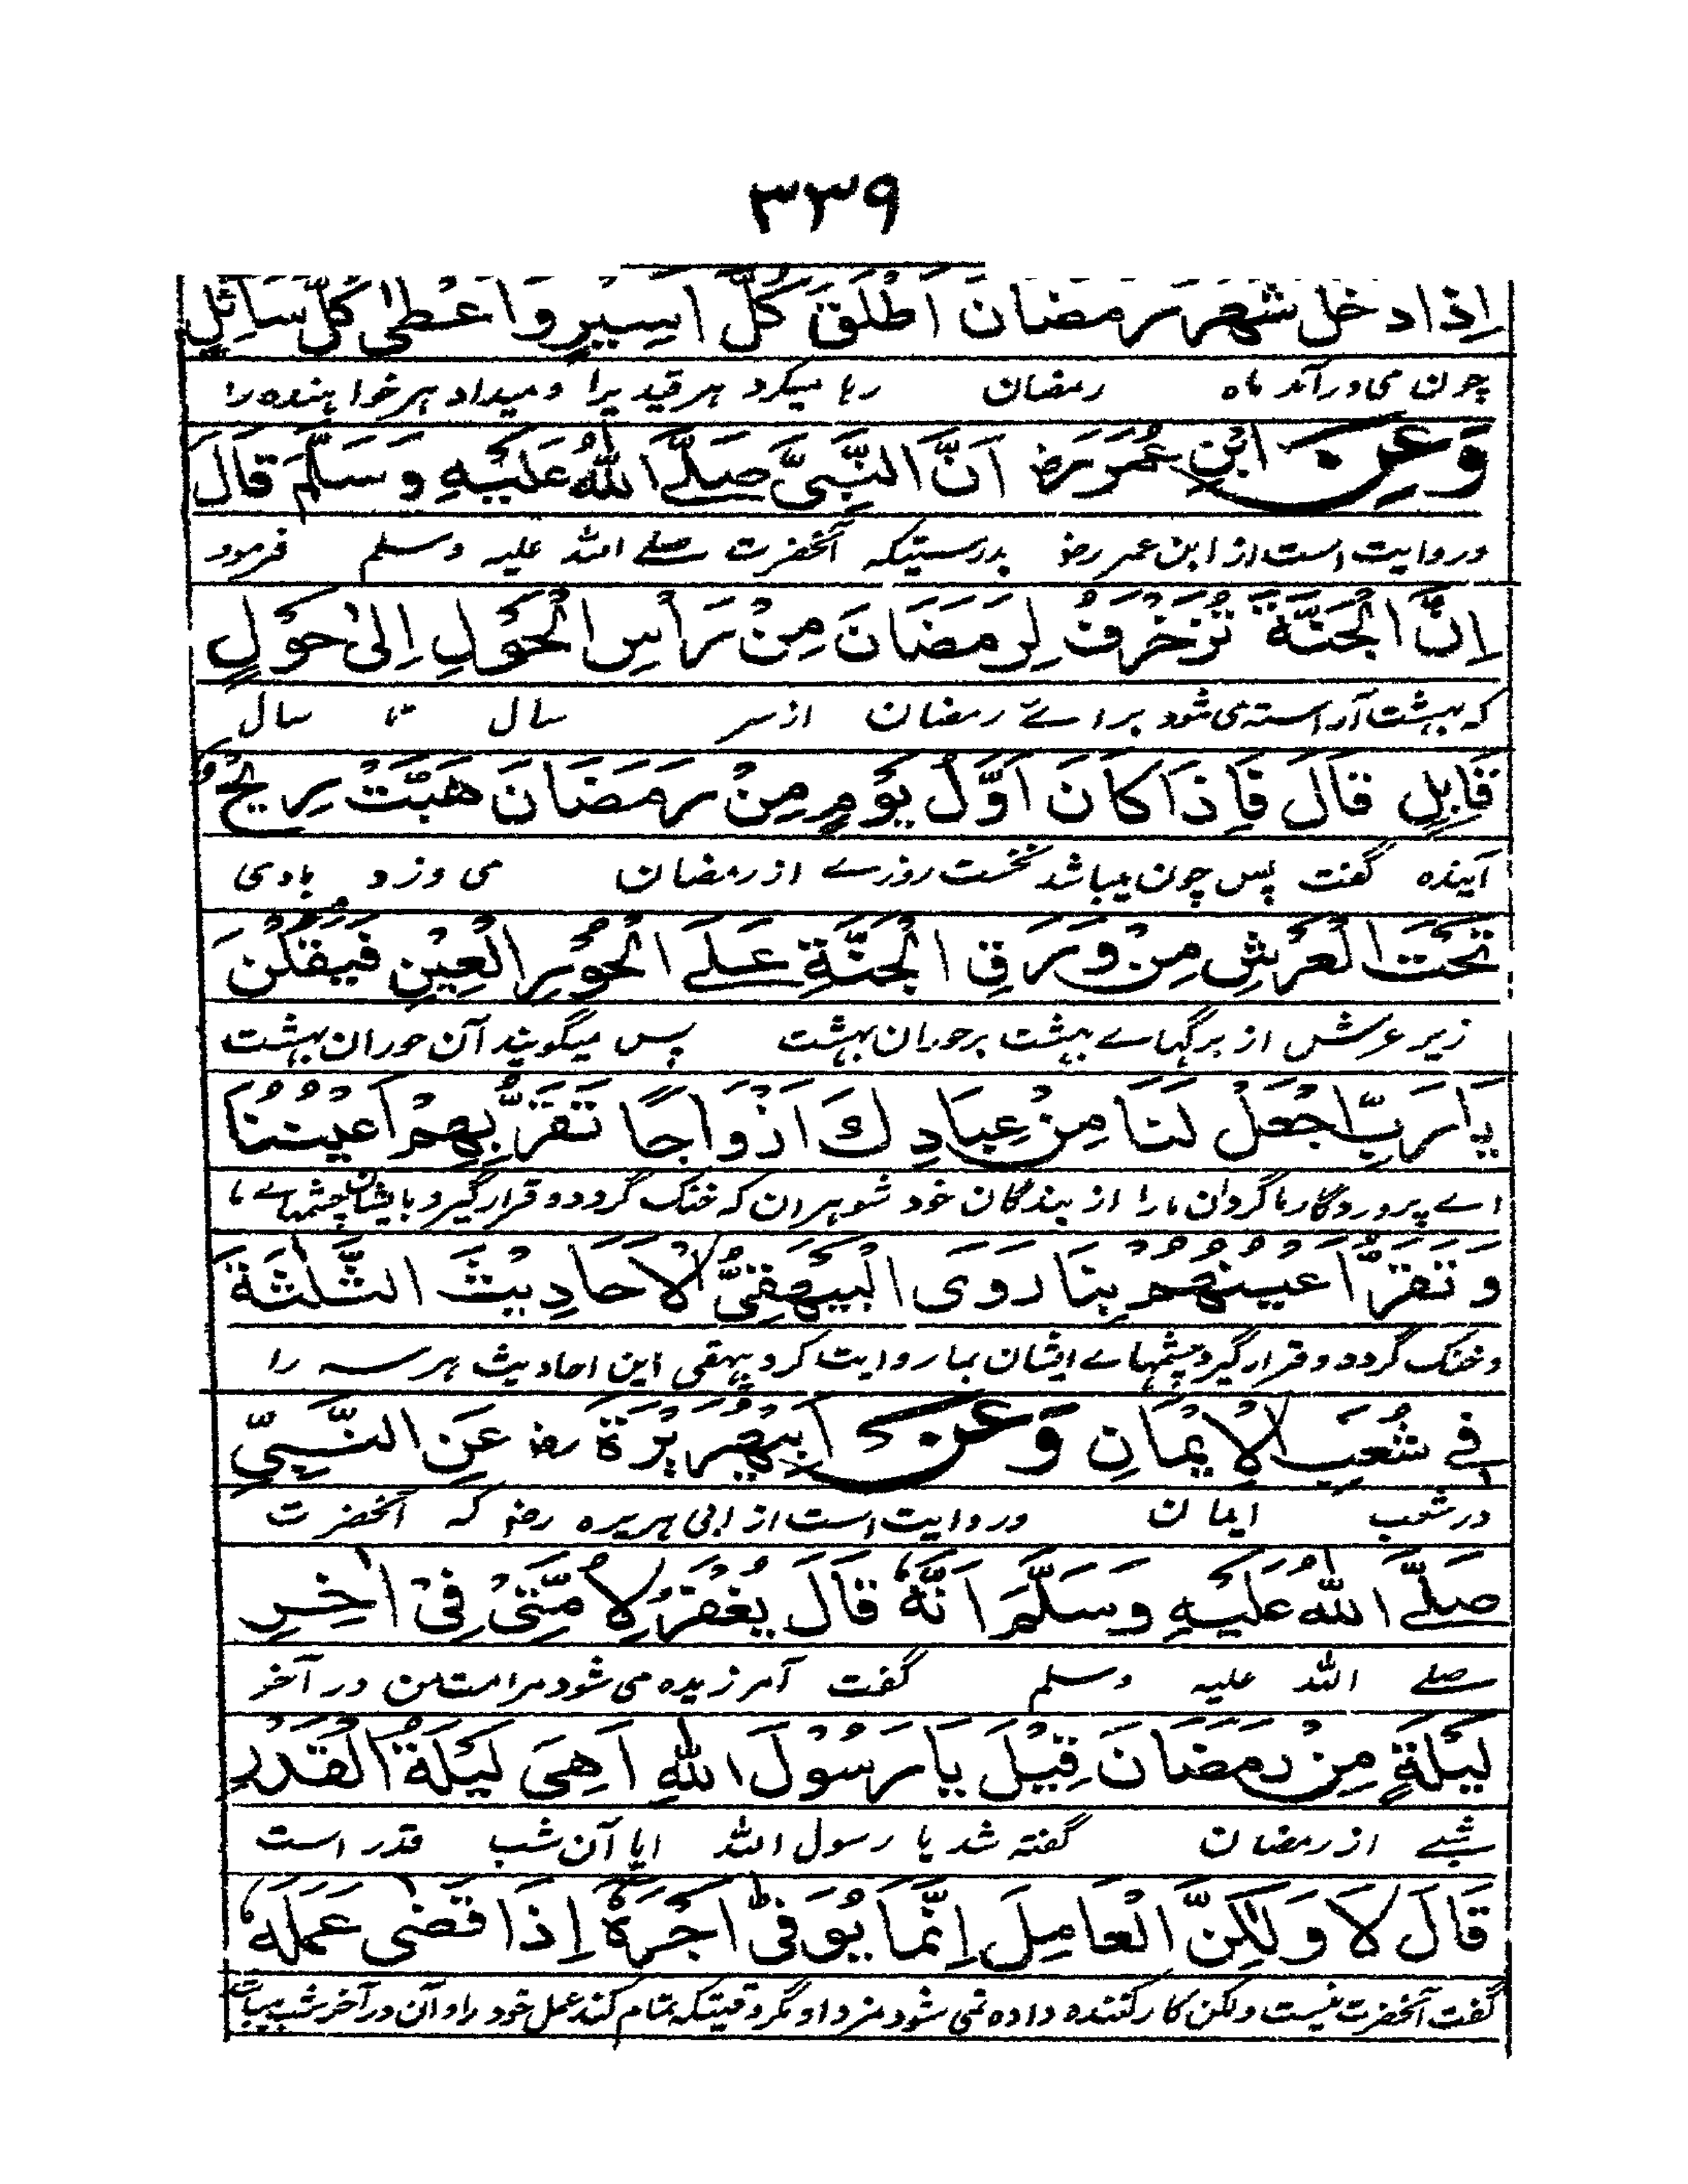 ۳۳۹
اِذَا دَخَلَ شَهْرُ رَمَضَانَ اَطْلَقَ كُلَّ اَسِيْرٍ وَاَعْطٰى كُلَّ سَائِلٍ
چون می درآمد ماه رمضان رہا میکرد ہر قیدیرا و میداد ہر خواہندہ را
وَعَنِ ابْنِ عُمَرَ رض اَنَّ النَّبِيَّ صَلَّے اللّٰهُ عَلَيْهِ وَسَلَّمَ قَالَ
و روایت است از ابن عمر رضہ بدرستیکہ آنحضرت صلے اللہ علیہ وسلم فرمود
اِنَّ الْجَنَّةَ تُزَخْرَفُ لِرَمَضَانَ مِنْ رَأْسِ الْحَوْلِ اِلٰى حَوْلٍ
کہ بہشت آراستہ می شود براے رمضان از سر سال تا سال
قَابِلٍ قَالَ فَاِذَا كَانَ اَوَّلُ يَوْمٍ مِنْ رَمَضَانَ هَبَّتْ رِيْحٌ
آیندہ گفت پس چون میباشد نخست روزے از رمضان می وزد بادی
تَحْتَ الْعَرْشِ مِنْ وَرَقِ الْجَنَّةِ عَلَے الْحُوْرِ الْعِيْنِ فَيَقُلْنَ
زیر عرش از برگہاے بہشت بر حوران بہشت پس میگویند آن حوران بہشت
يَا رَبِّ اجْعَلْ لَنَا مِنْ عِبَادِكَ اَزْوَاجًا تَقَرُّ بِهِمْ اَعْيُنُنَا
اے پروردگار ما گردان ما را از بندگان خود شوہران کہ خنک گردد و قرار گیرد بایشان چشمہاے ما
وَتَقَرُّ اَعْيُنُهُمْ بِنَا رَوَى الْبَيْهَقِيُّ الْاَحَادِيْثَ الثَّلٰثَةَ
و خنک گردد و قرار گیرد چشمہاے ایشان بما روایت کرد بیہقی این احادیث ہر سہ را
فِے شُعَبِ الْاِيْمَانِ وَعَنْ اَبِيْهُرَيْرَةَ رض عَنِ النَّبِيِّ
در شعب ایمان و روایت است از ابی ہریرہ رضہ کہ آنحضرت
صَلَّے اللّٰهُ عَلَيْهِ وَسَلَّمَ اَنَّهٗ قَالَ يُغْفَرُ لِاُمَّتِىْ فِىْ اٰخِرِ
صلے اللہ علیہ وسلم گفت آمرزیدہ می شود مر امت من در آخر
لَيْلَةٍ مِنْ رَمَضَانَ قِيْلَ يَا رَسُوْلَ اللّٰهِ اَهِىَ لَيْلَةُ الْقَدْرِ
شبے از رمضان گفتہ شد یا رسول اللہ ایا آن شب قدر است
قَالَ لَا وَلٰكِنَّ الْعَامِلَ اِنَّمَا يُوَفّٰى اَجْرَهٗ اِذَا قَضٰى عَمَلَهٗ
گفت آنحضرت نیست ولکن کار کنندہ دادہ نمی شود مزد او مگر وقتیکہ تمام کند عمل خود را و آن در آخر شب